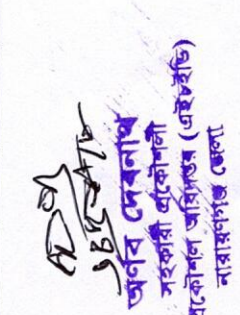 অর্ণব দেবনাথ
সহকারী প্রকৌশলী
প্রকৌশল অধিদপ্তর (এইচইডি)
নারায়ণগঞ্জ জেলা